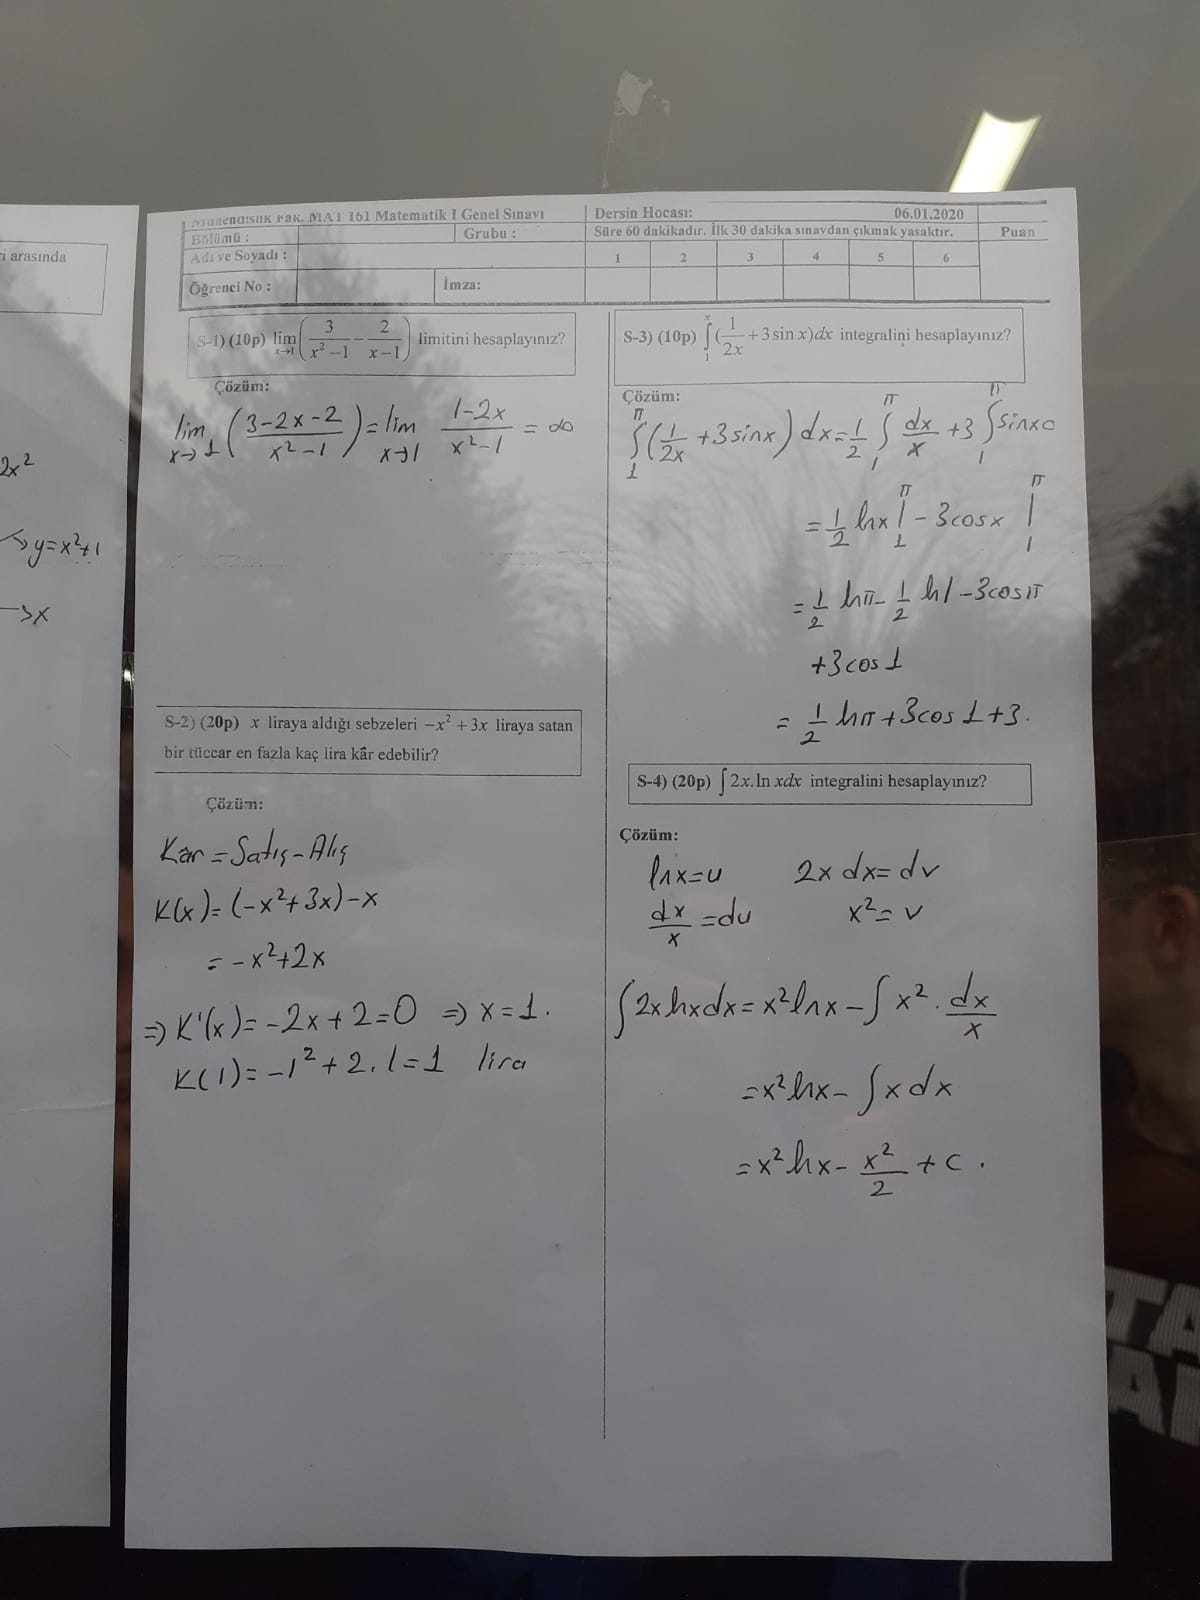 i arasında
2x²
→ y=x²+1
→x
Mühendislik Fak. MAT 161 Matematik I Genel Sınavı
Dersin Hocası:
06.01.2020
Bölümü :
Grubu :
Süre 60 dakikadır. İlk 30 dakika sınavdan çıkmak yasaktır.
Puan
Adı ve Soyadı :
1 2 3 4 5 6
Öğrenci No :
İmza:
S-1) (10p) lim x→1 (3/(x²-1) - 2/(x-1)) limitini hesaplayınız?
Çözüm:
lim x→1 ((3-2x-2)/(x²-1)) = lim x→1 (1-2x)/(x²-1) = ∞
S-2) (20p) x liraya aldığı sebzeleri -x² + 3x liraya satan
bir tüccar en fazla kaç lira kâr edebilir?
Çözüm:
Kâr = Satış - Alış
K(x) = (-x²+3x)-x
= -x²+2x
⇒ K'(x) = -2x+2=0 ⇒ x=1.
K(1) = -1²+2.1=1 lira
S-3) (10p) ∫₁^π (1/(2x) + 3 sin x)dx integralini hesaplayınız?
Çözüm:
∫₁^π (1/(2x) + 3 sinx) dx = 1/2 ∫₁^π dx/x + 3 ∫₁^π sinx
= 1/2 lnx |₁^π - 3cosx |₁^π
= 1/2 lnπ - 1/2 ln1 - 3cosπ
+3cos1
= 1/2 lnπ + 3cos1 + 3.
S-4) (20p) ∫2x.ln xdx integralini hesaplayınız?
Çözüm:
lnx=u 2x dx=dv
dx/x = du x² = v
∫2xlnxdx = x²lnx - ∫x² . dx/x
= x²lnx - ∫x dx
= x²lnx - x²/2 + c .
TA